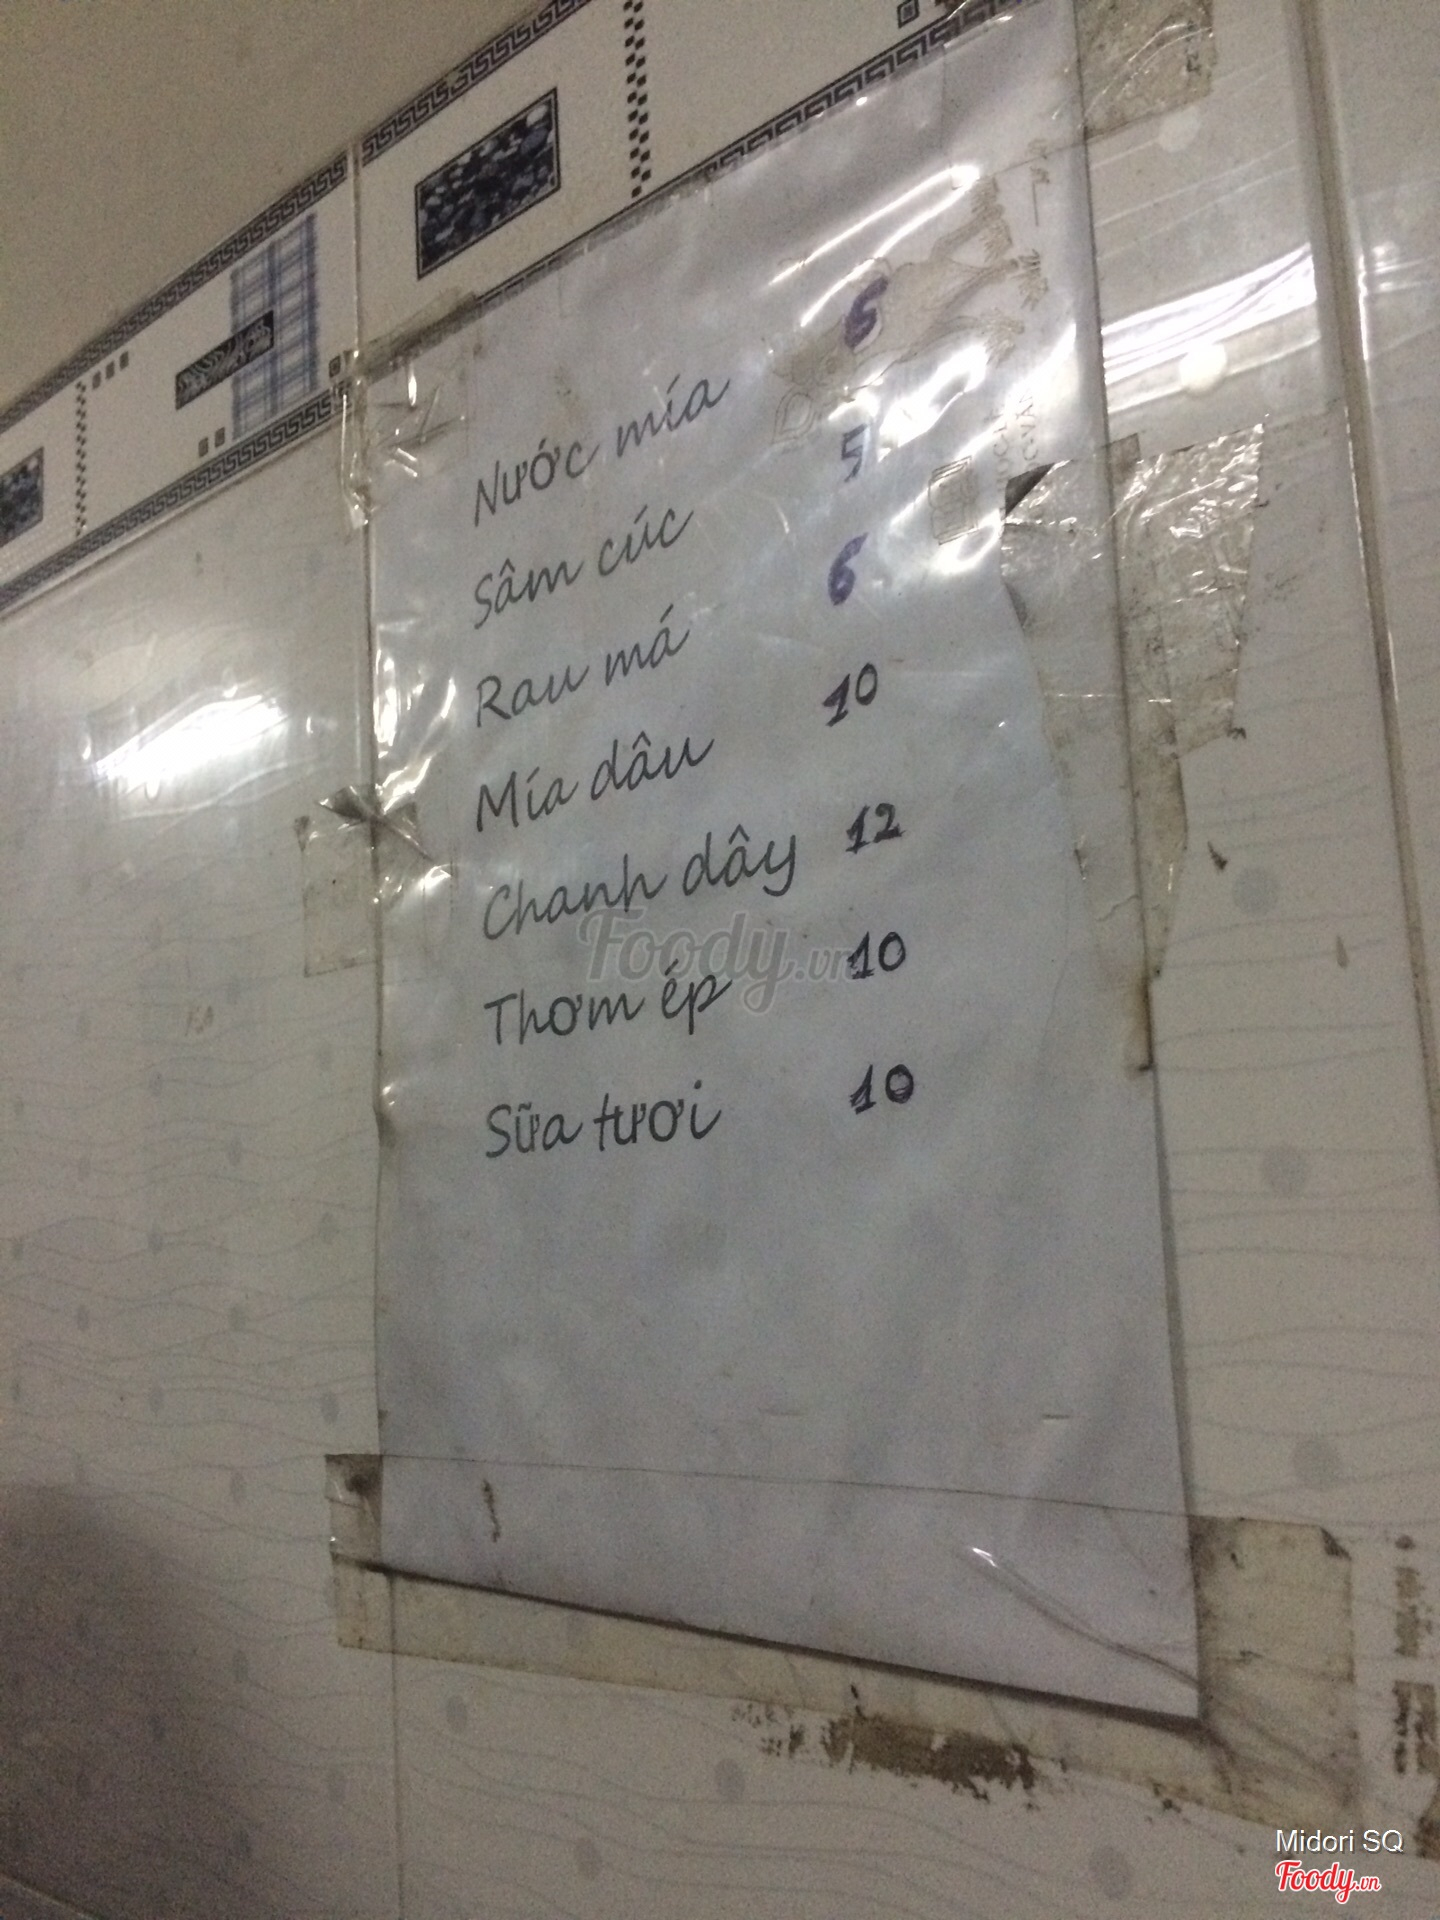 Nước mía 6
Sâm cúc 5
Rau má 6
Mía dâu 10
Chanh dây 12
Thơm ép 10
Sữa tươi 10
Foody.vn
Midori SQ
Foody.vn